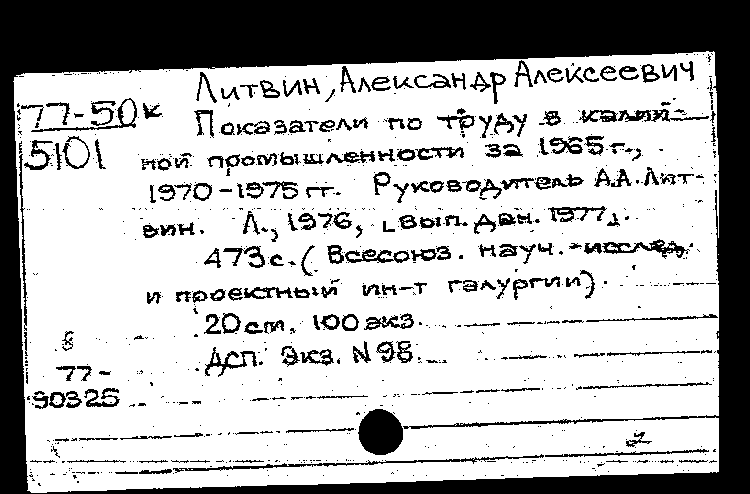 Литвин, Александр Алексеевич
77-50к
5101
Показатели по труду в калий-
ной промышленности за 1965 г.,
1970-1975 гг. Руководитель А.А. Лит-
вин. Л., 1976, [вып. дан. 1977].
473 с. (Всесоюз. науч.-исслед.
и проектный ин-т галургии).
20 cm. 100 экз.
ДСП. Экз. N 98.
б
77-
90325